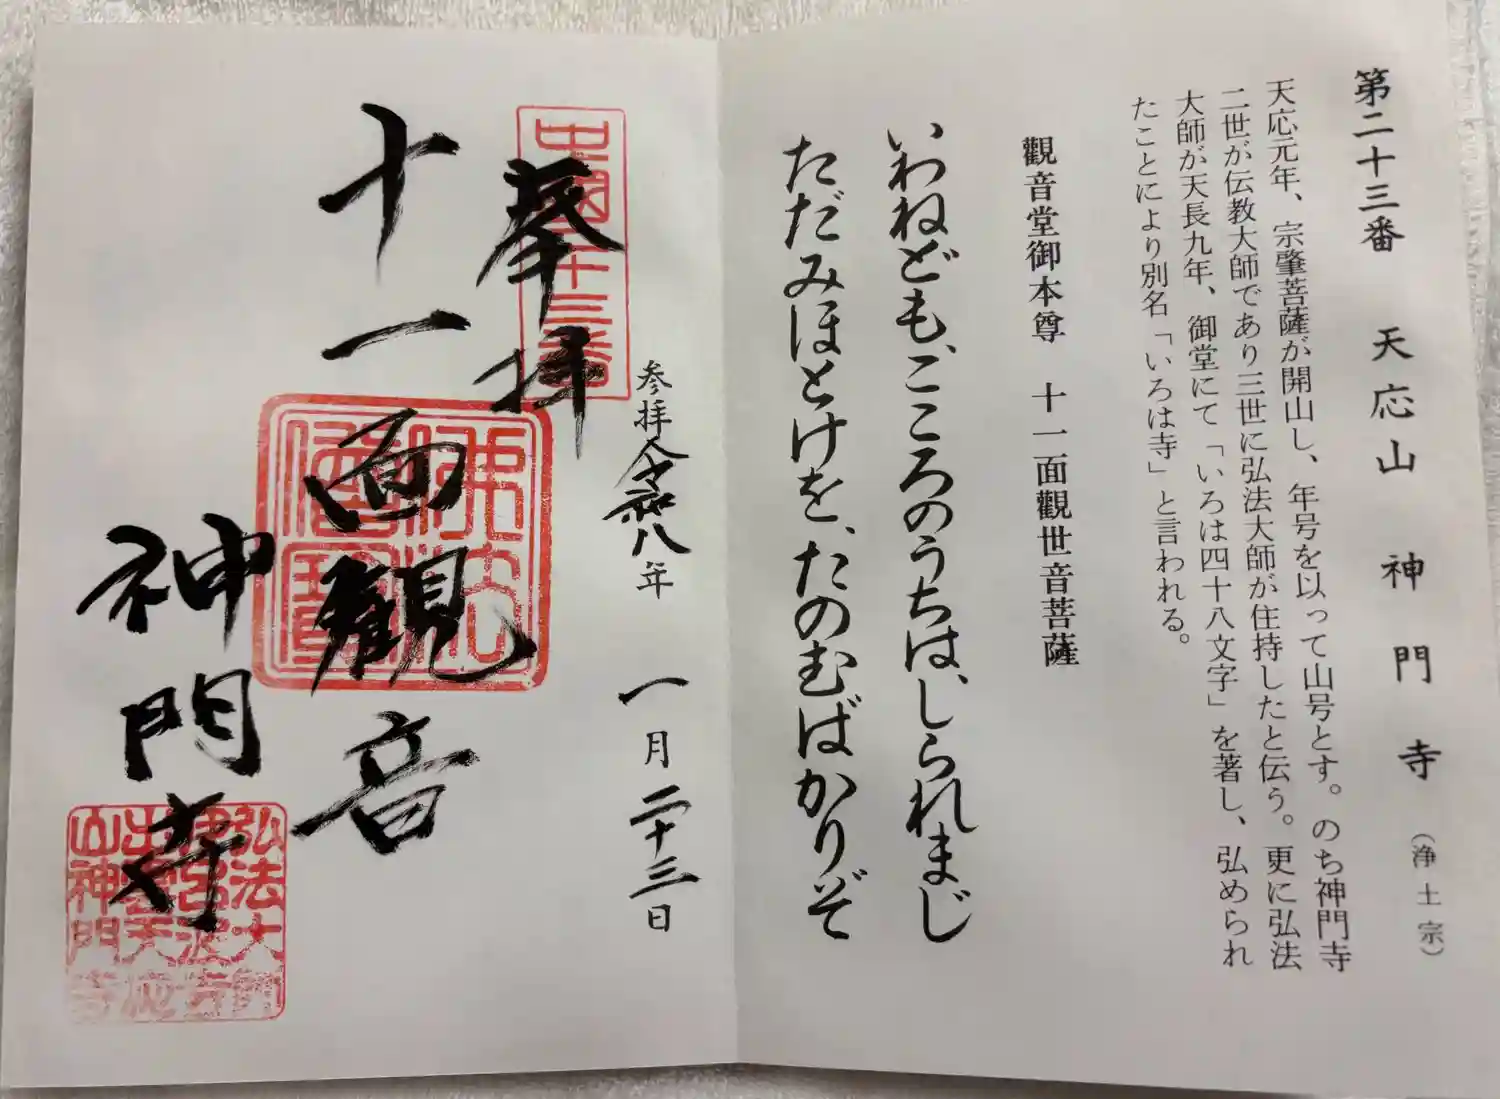 第二十三番　天応山　神門寺（浄土宗）
天応元年、宗肇菩薩が開山し、年号を以って山号とす。のち神門寺
二世が伝教大師であり三世に弘法大師が住持したと伝う。更に弘法
大師が天長九年、御堂にて「いろは四十八文字」を著し、弘められ
たことにより別名「いろは寺」と言われる。
觀音堂御本尊　十一面觀世音菩薩
いわねども、こころのうちは、しられまじ
ただみほとけを、たのむばかりぞ
参拝令和八年　一月二十三日
奉拝
中國二十三番
十一面観音
佛法僧寳
神門寺
弘法大師
出雲天応
山神門寺